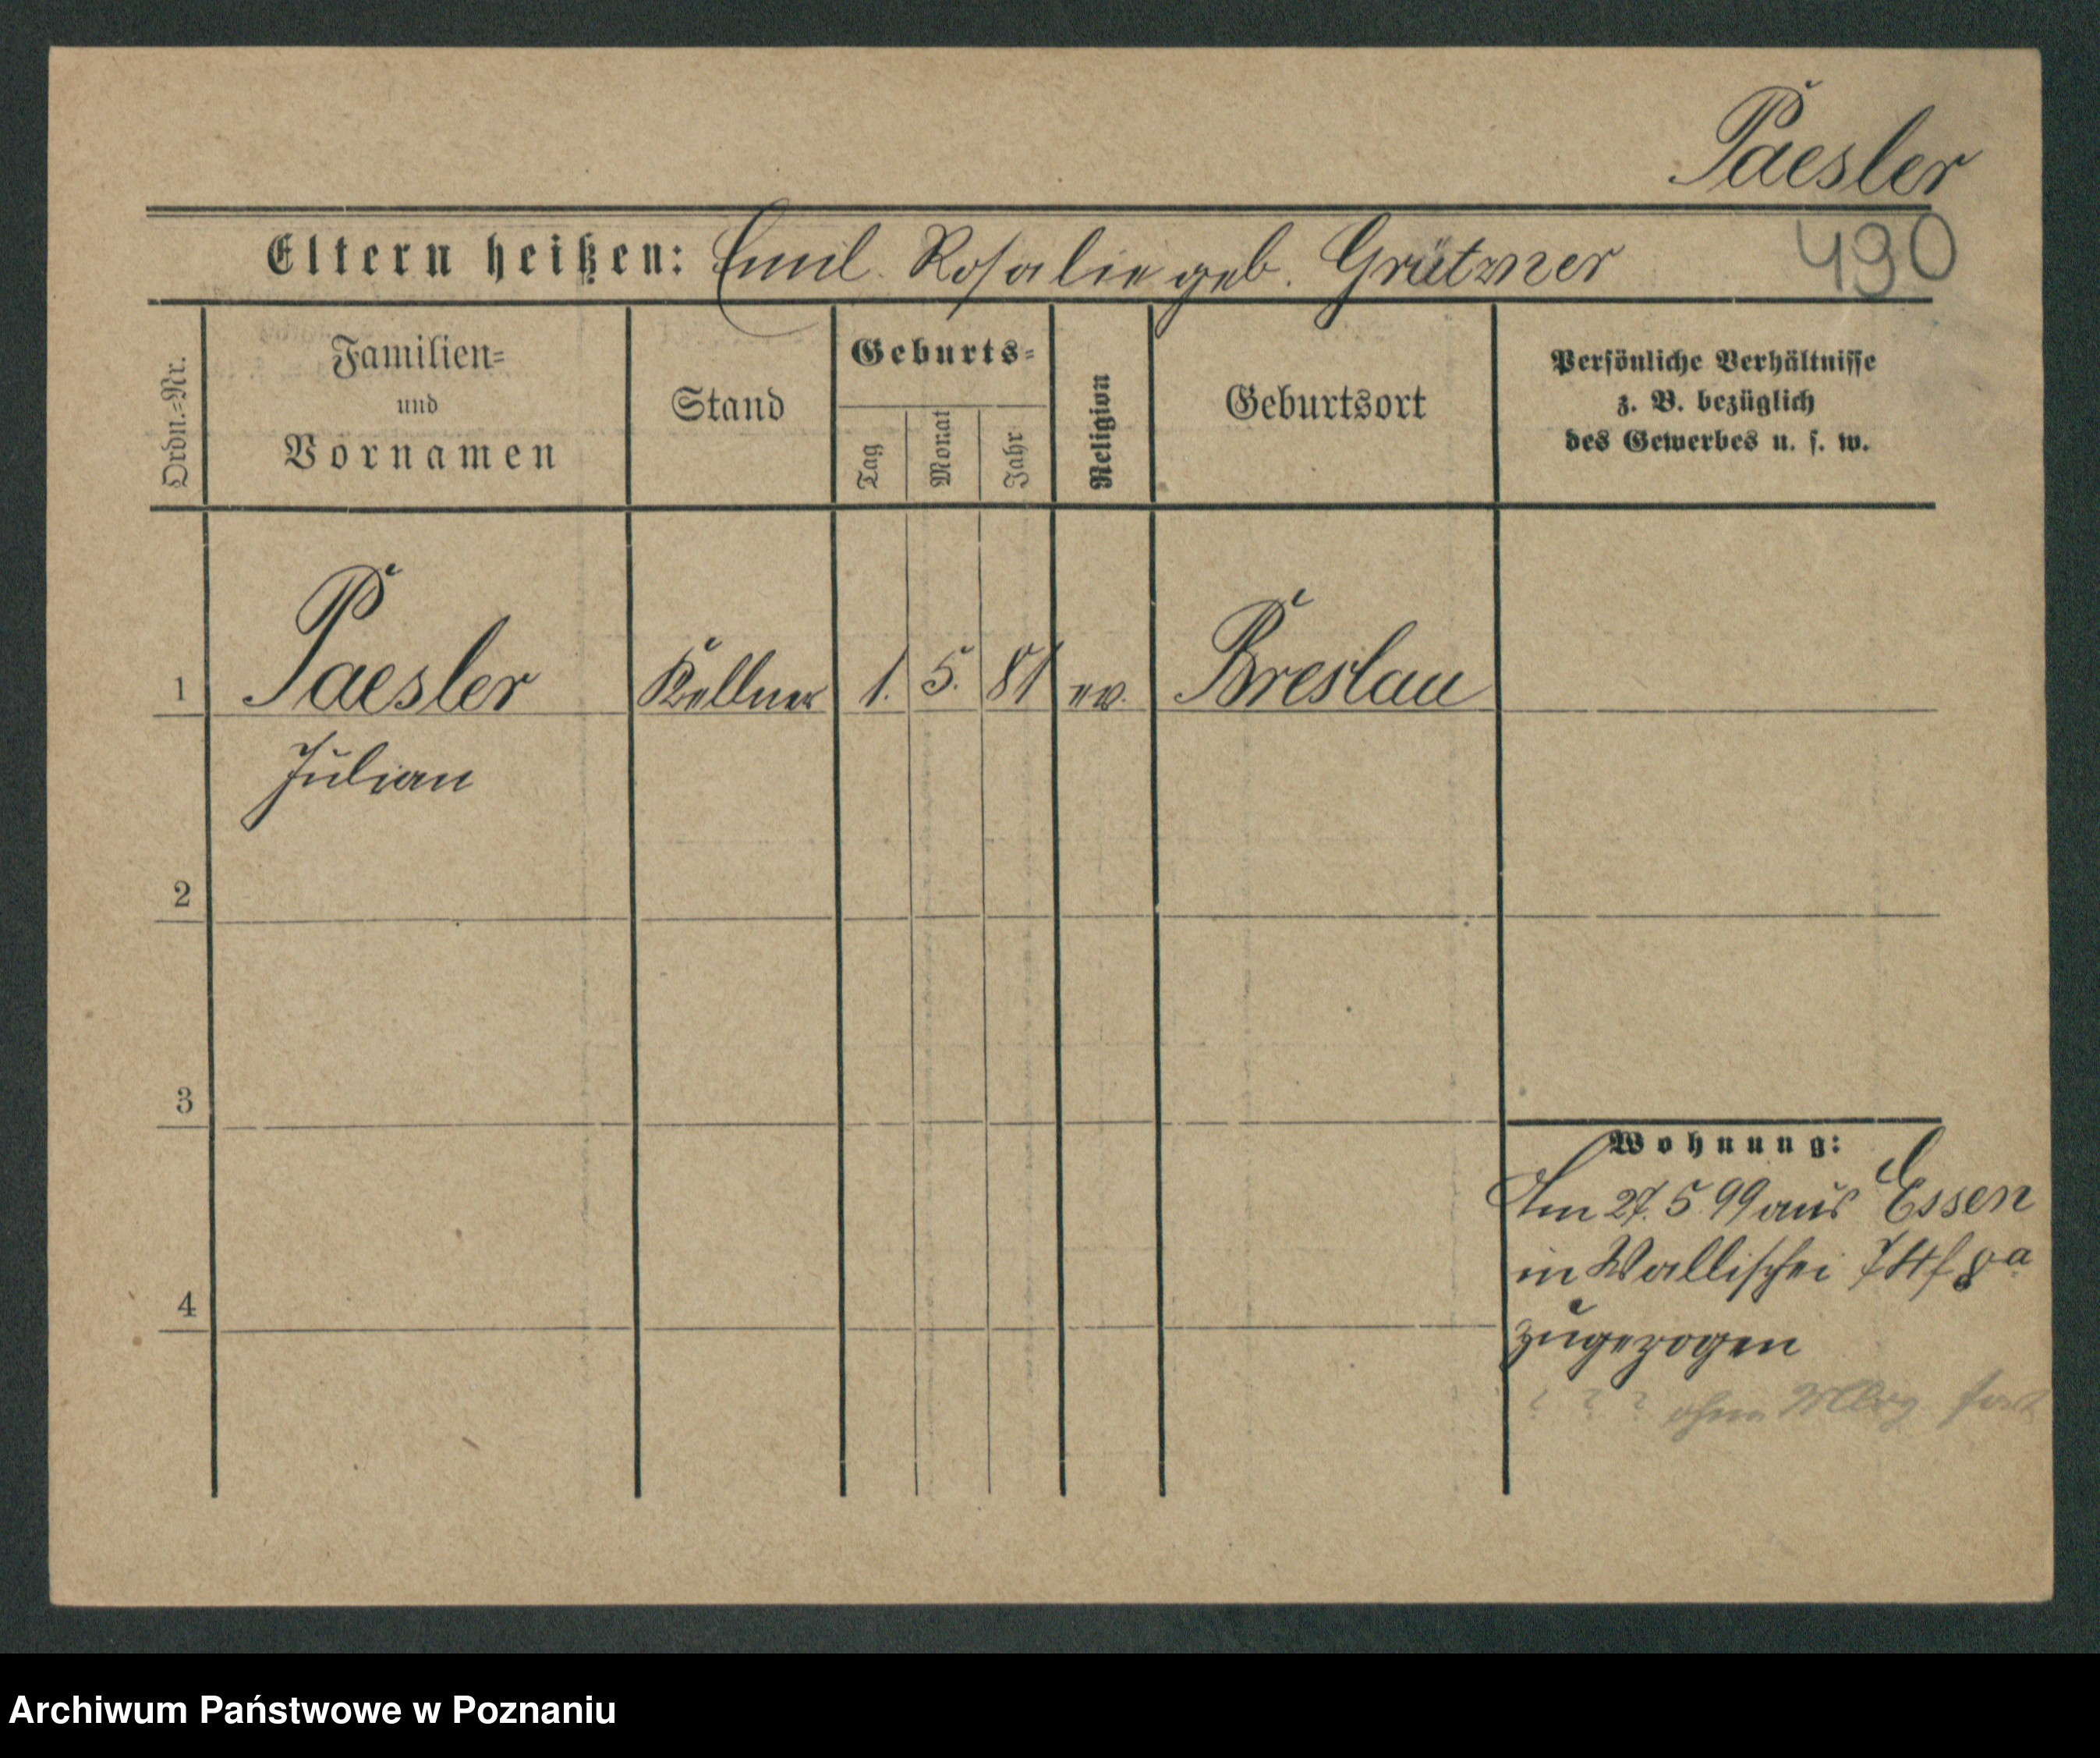 Paesler
490
Eltern heißen: Emil. Rosalie geb. Grützner
Ordn.=Nr.
Familien=
und
Vornamen
Stand
Geburts=
Tag
Monat
Jahr
Religion
Geburtsort
Persönliche Verhältnisse
z. B. bezüglich
des Gewerbes u. s. w.
1 Paesler Kellner 1. 5. 81 ev. Breslau
Julian
2
3
4
Wohnung:
Am 27. 5. 99 aus Essen
in Wallischei 74 f 8a
zugezogen
? ? ? ohne Mldg fort
Archiwum Państwowe w Poznaniu